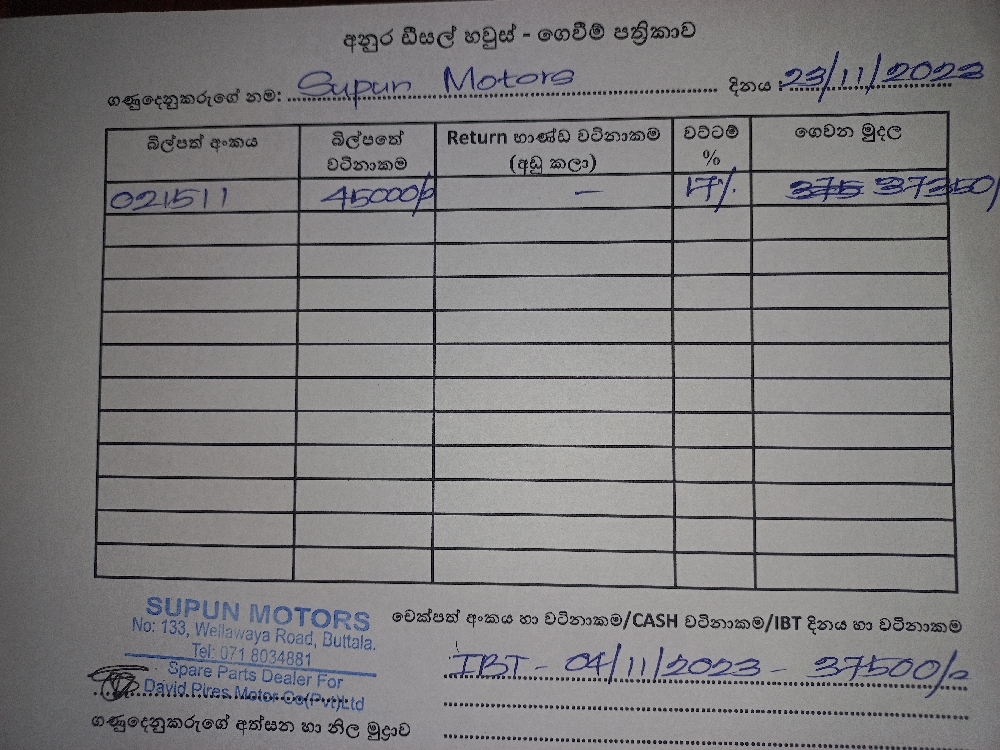 අනුර ඩීසල් හවුස් - ගෙවීම් පත්‍රිකාව
ගණුදෙනුකරුගේ නම: Supun Motors දිනය : 23/11/2023
බිල්පත් අංකය බිල්පතේ වටිනාකම Return භාණ්ඩ වටිනාකම (අඩු කලා) වට්ටම් % ගෙවන මුදල
021511 45000/- — 17% 375 37350/
SUPUN MOTORS
No: 133, Wellawaya Road, Buttala.
Tel: 071 8034881
Spare Parts Dealer For
David Pires Motor Co(Pvt)Ltd
ගණුදෙනුකරුගේ අත්සන හා නිල මුද්‍රාව
චෙක්පත් අංකය හා වටිනාකම/CASH වටිනාකම/IBT දිනය හා වටිනාකම
IBT - 04/11/2023 - 37500/-